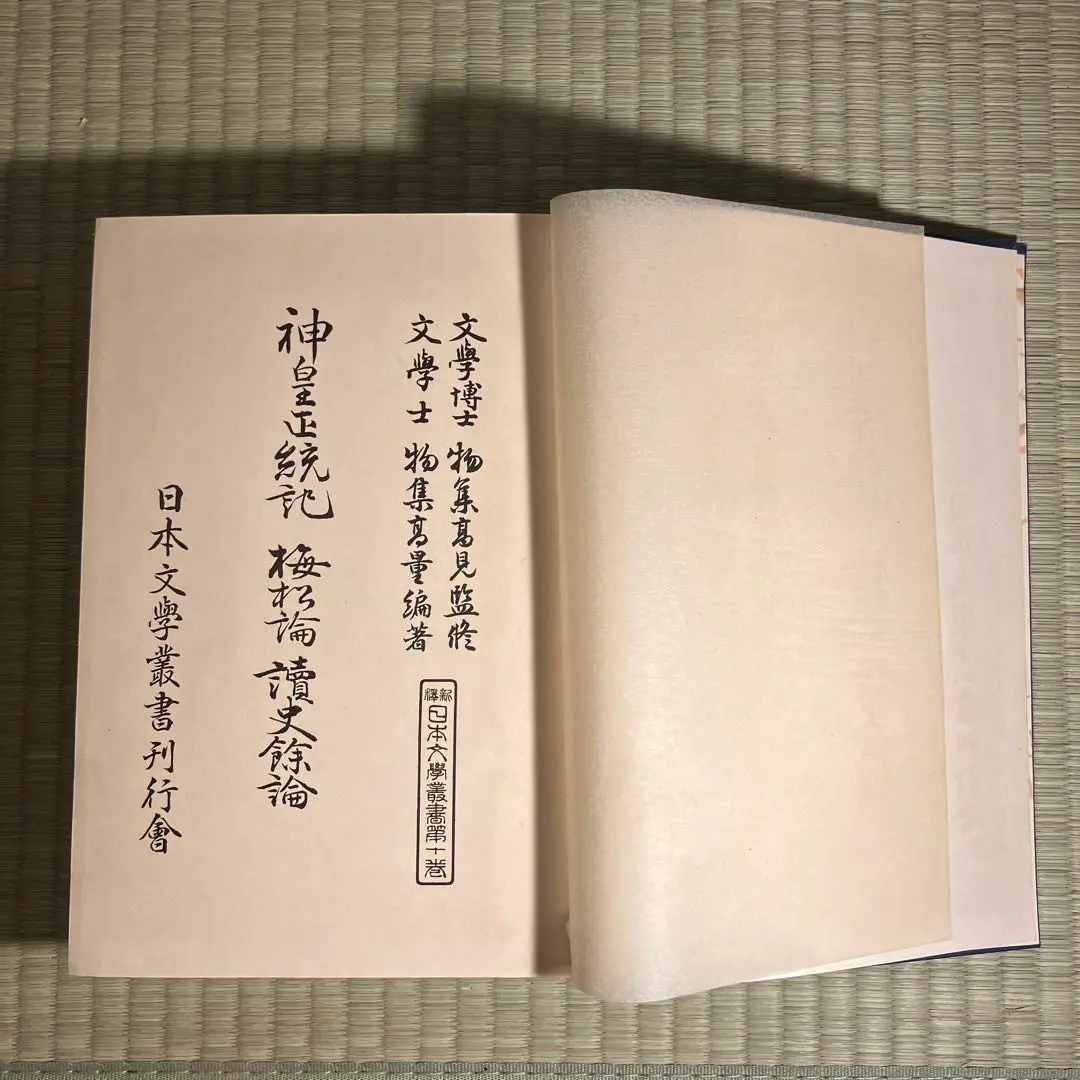 文學博士 物集高見監修
文學士 物集高量編著
新釋日本文學叢書第十卷
神皇正統記 梅松論 讀史餘論
日本文學叢書刊行會